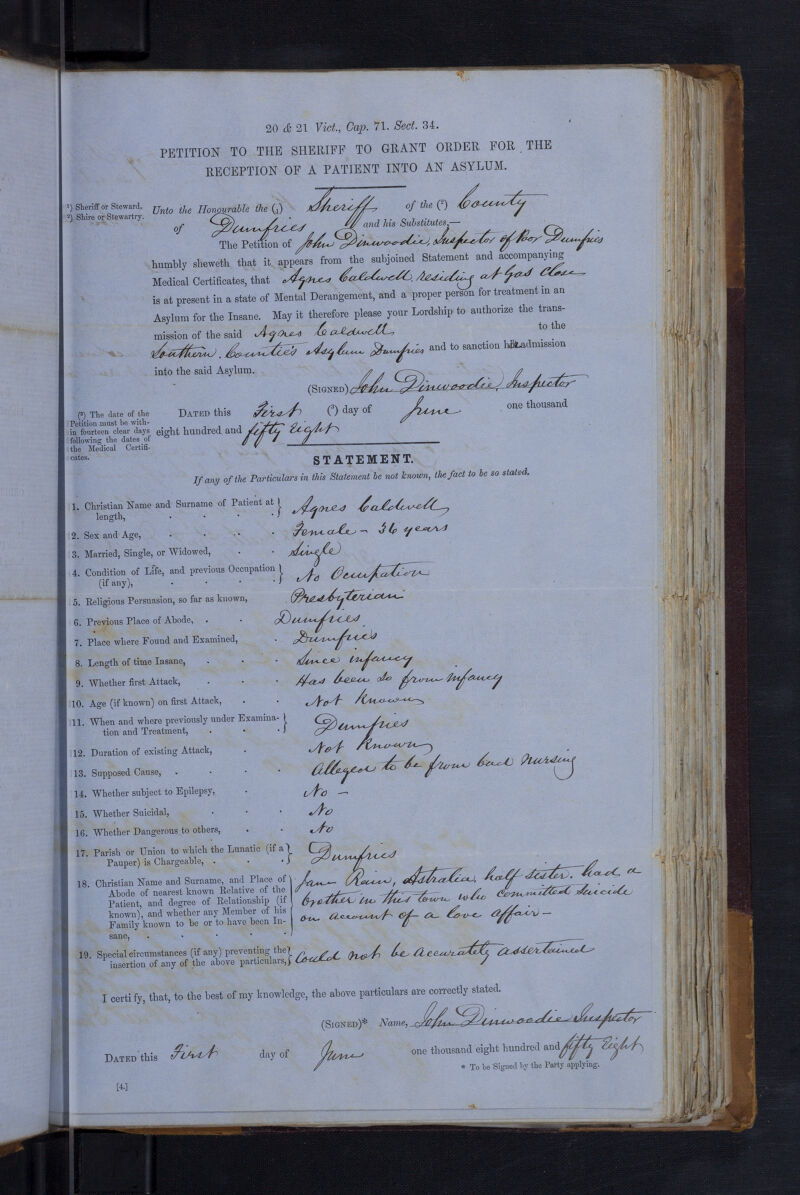 20 & 21 Vict., Cap. 71. Sect. 34.
PETITION TO THE SHERIFF TO GRANT ORDER FOR THE
RECEPTION OF A PATIENT INTO AN ASYLUM.
(¹) Sheriff or Steward.
(²) Shire or Stewartry.
Unto the Honourable the (1) Sheriff of the (²) County
of Dumfries and his Substitutes,—
The Petition of John Dinwoodie, Inspector of Poor Dumfries
humbly sheweth that it appears from the subjoined Statement and accompanying
Medical Certificates, that Agnes Caldwell, residing at Gas Close
is at present in a state of Mental Derangement, and a proper person for treatment in an
Asylum for the Insane. May it therefore please your Lordship to authorize the trans-
mission of the said Agnes Caldwell to the
Southern Counties Asylum Dumfries and to sanction her admission
into the said Asylum.
(SIGNED) John Dinwoodie, Inspector
(³) The date of the
Petition must be with-
in fourteen clear days
following the dates of
the Medical Certifi-
cates.
DATED this First (³) day of June one thousand
eight hundred and fifty Eight
STATEMENT.
If any of the Particulars in this Statement be not known, the fact to be so stated.
1. Christian Name and Surname of Patient at length, Agnes Caldwell
2. Sex and Age, Female - 36 years
3. Married, Single, or Widowed, Single
4. Condition of Life, and previous Occupation (if any), No Occupation
5. Religious Persuasion, so far as known, Presbyterian
6. Previous Place of Abode, Dumfries
7. Place where Found and Examined, Dumfries
8. Length of time Insane, Since infancy
9. Whether first Attack, Has been so from Infancy
10. Age (if known) on first Attack, Not Known
11. When and where previously under Examina-tion and Treatment, Dumfries
12. Duration of existing Attack, Not Known
13. Supposed Cause, Alleged to be from bad Nursing
14. Whether subject to Epilepsy, No —
15. Whether Suicidal, No
16. Whether Dangerous to others, No
17. Parish or Union to which the Lunatic (if a Pauper) is Chargeable, Dumfries
18. Christian Name and Surname, and Place of Abode of nearest known Relative of the Patient, and degree of Relationship (if known), and whether any Member of his Family known to be or to have been In-sane,
Jane Rain, Astralia, half Sister. had a
brother in this town who committed Suicide
on account of a love affair —
19. Special circumstances (if any) preventing the insertion of any of the above particulars, Could not be accurately assertained
I certify, that, to the best of my knowledge, the above particulars are correctly stated.
(SIGNED)* Name, John Dinwoodie Inspector
DATED this First day of June one thousand eight hundred and fifty Eight
* To be Signed by the Party applying.
[4.]